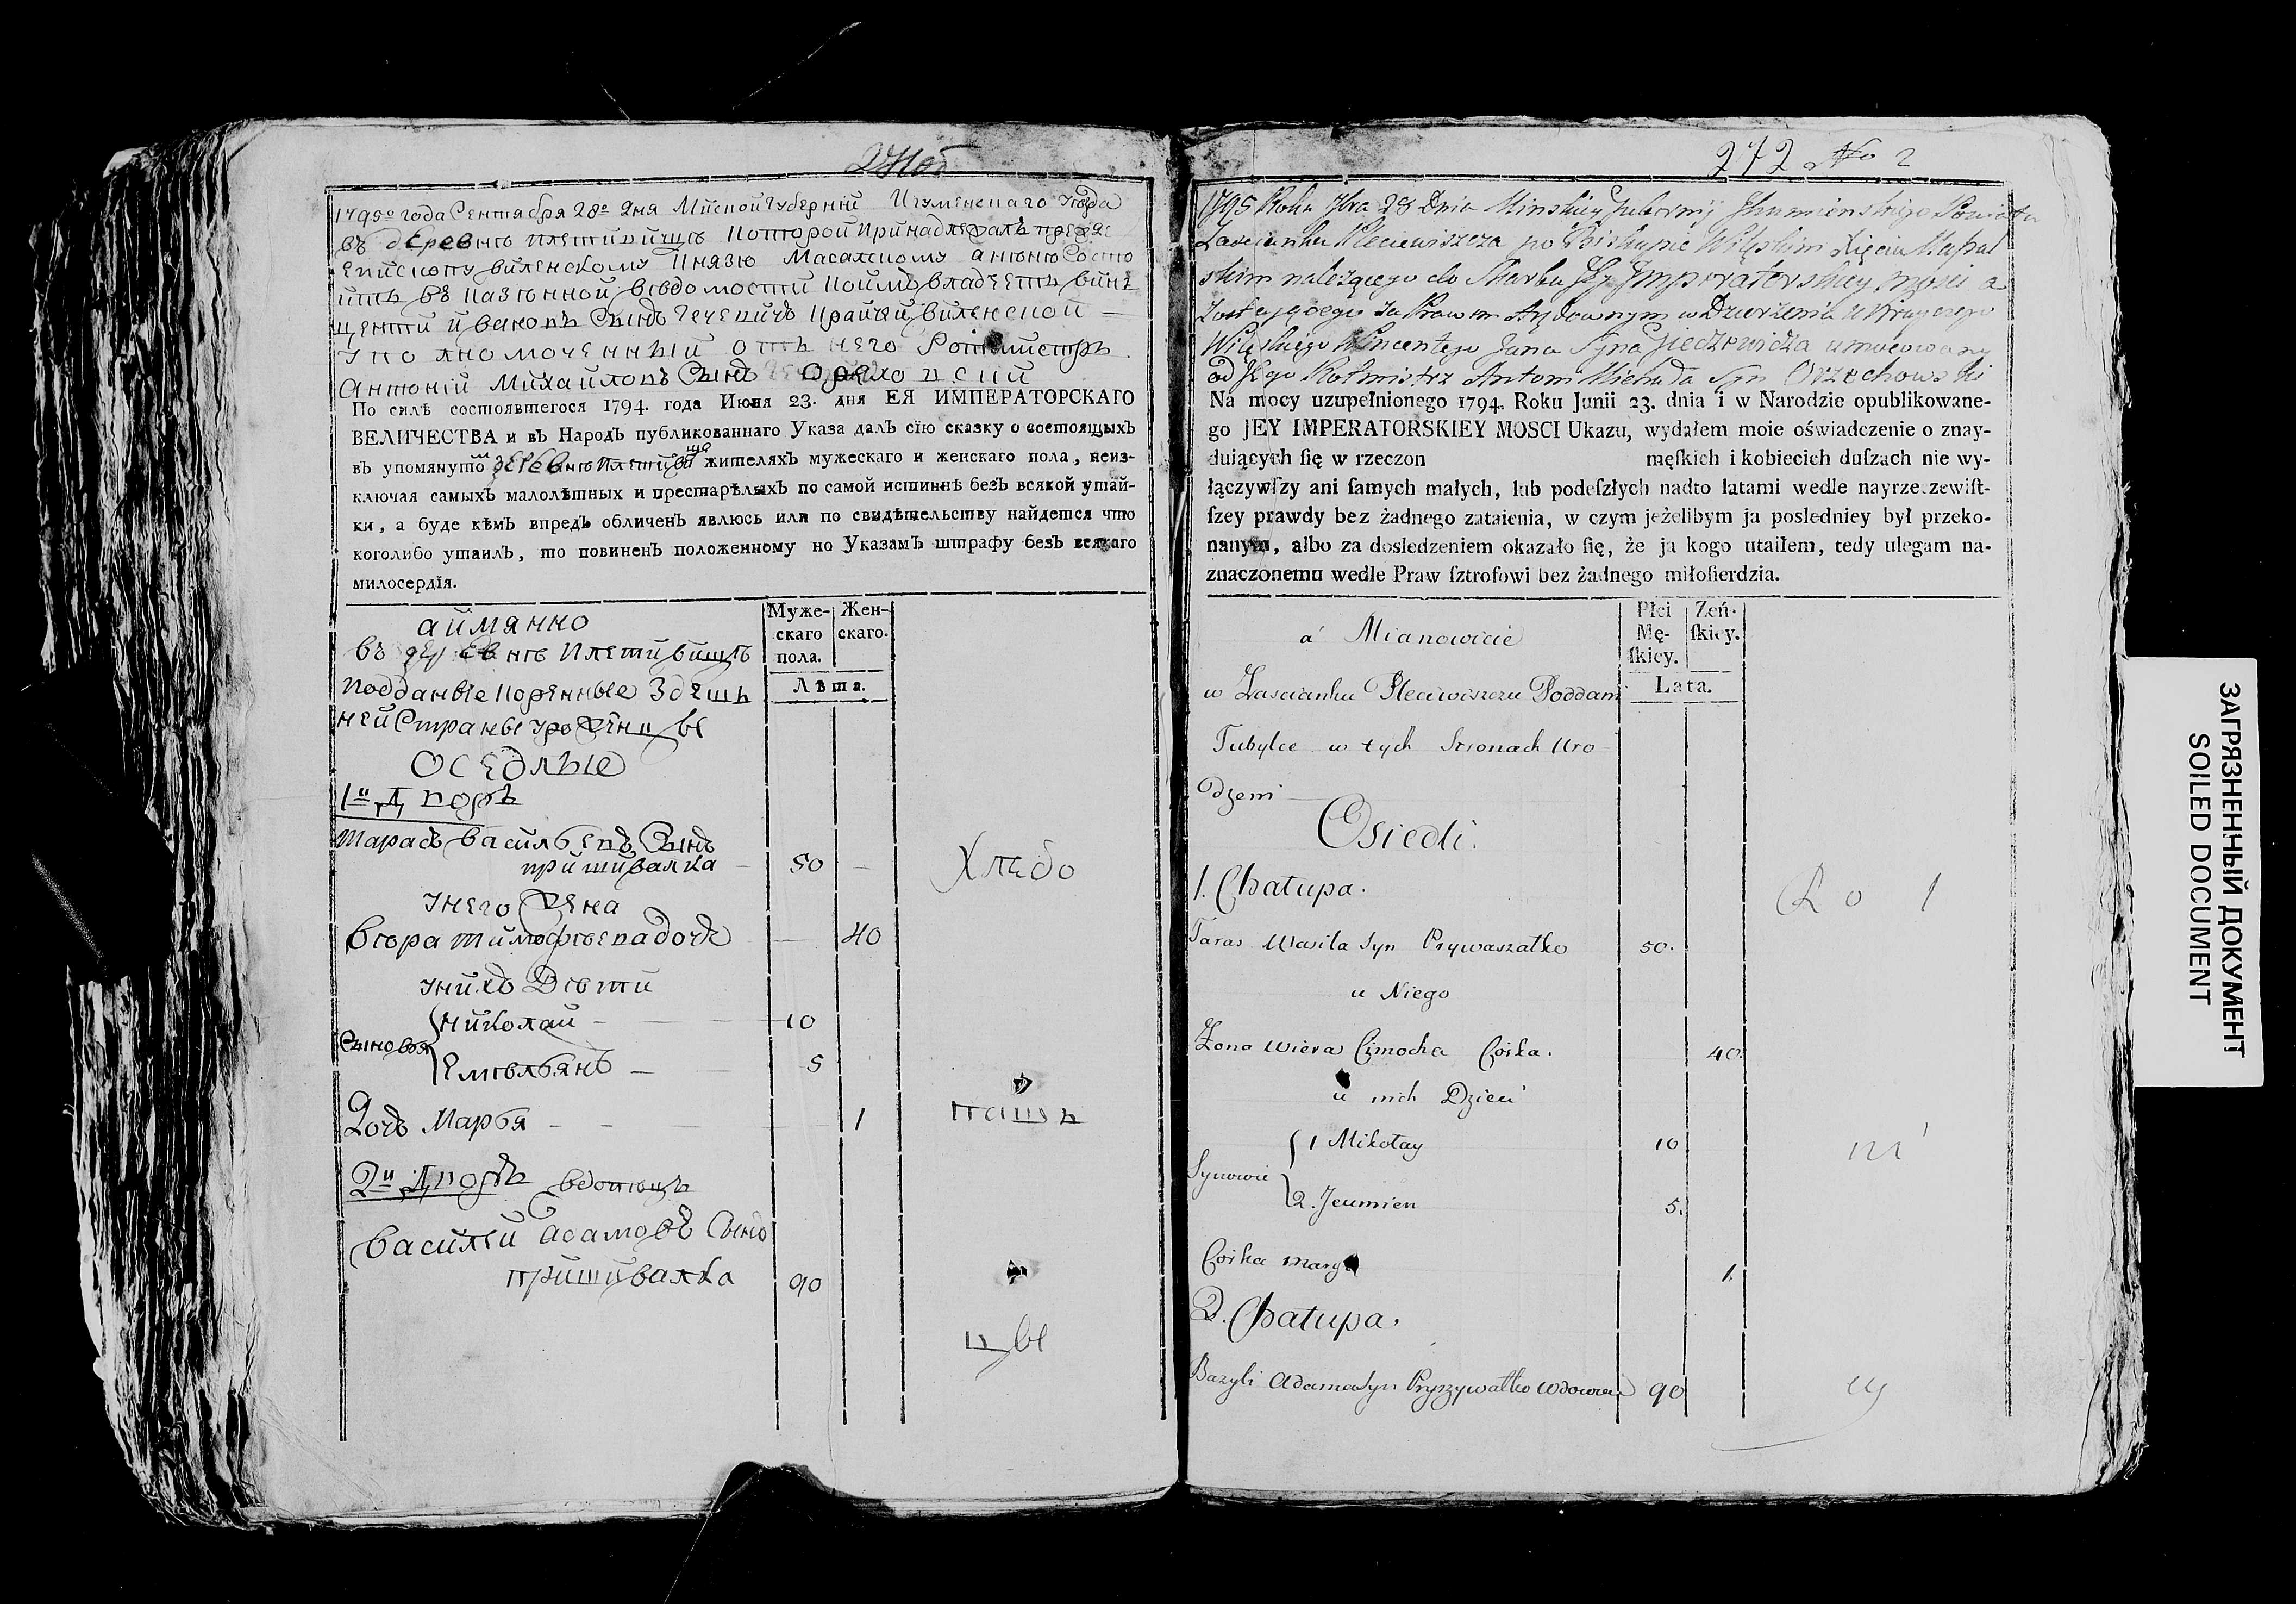 1795го года Сентября 28го дня Минской Губерній Игуменскаго Уезда
въ деревнѣ Плетивищѣ Которой Принадлежалъ прежде
Епископу виленскому Князю Масалскому а нынѣ Состо
итъ въ Казѣнной вѣдомости Коимъ владѣетъ вин
центій Ивановъ Сынъ Гечевичъ Крайчій виленской —
Уполномоченный отъ него Ротмистръ
Антоній Михайловъ Сынъ Орѣховскій
По силѣ состоявшегося 1794. года Июня 23. дня ЕЯ ИМПЕРАТОРСКАГО
ВЕЛИЧЕСТВА и въ Народъ публикованнаго Указа далъ сїю сказку о состоящыхъ
въ упомянутой деревнѣ Плетивищѣ жителяхъ мужескаго и женскаго пола, неиз-
ключая самыхъ малолѣтныхъ и престарѣлыхъ по самой истиннѣ безъ всякой утай-
ки, а буде кѣмъ впредь обличенъ явлюсь или по свидѣтельству найдется что
коголибо утаилъ, то повиненъ положенному по Указамъ штрафу безъ всякаго
милосердїя.
Муже-
скаго
пола.
Жен-
скаго.
Лѣта.
аймянно
въ деревнѣ Плетивищѣ
подданые коренные Здешъ
ней Страны урожѣнцы
Оседлые
1й Дворъ
Тарасъ васильевъ Сынъ
пришивалка — 50 —
Хлебо
Унего Жена
вѣра тимофѣева дочь — 40
Унихъ Дѣти
Сыновья
Николай — 10
Емельянъ — 5
Дочь Марья — 1
пашъ
2й Дворъ вдовецъ
василей адамовъ Сынъ
пришивалка 90
цы
272 No 2
1795 Roku 7bra 28 Dnia Minskiey Gubernij Ihumienskiego Powiatu
Zascianku Pleciewiszcza po Biskupie Wileskim Xięciu Massal
skim należącego do Skarbu Jey Imperatorskiey Mosci a
Zostającego za Prawem Arędownym w Dzierżeniu Krayczego
Wileskiego Wincentego Jana Syna Gieczewicza umocowany
od Jego Rotmistrz Antoni Michała Syn Orzechowski
Na mocy uzupełnionego 1794. Roku Junii 23. dnia i w Narodzie opublikowane-
go JEY IMPERATORSKIEY MOSCI Ukazu, wydałem moie oświadczenie o znay-
duiących ſię w rzeczon męſkich i kobiecich duſzach nie wy-
łączywſzy ani ſamych małych, lub podeſzłych nadto latami wedle nayrzeczewiſt-
ſzey prawdy bez żadnego zataienia, w czym jeżelibym ja posledniey był przeko-
nanym, albo za dosledzeniem okazało ſię, że ja kogo utaiłem, tedy ulegam na-
znaczonemu wedle Praw ſztrofowi bez żadnego miłoſierdzia.
Płci
Mę-
ſkiey.
Zeń-
ſkiey.
Lata.
a Mianowicie
w Zascianku Pleciwiszczu Poddani
Tubylce w tych Stronach Uro-
dzeni —
Osiedli.
1. Chatupa.
Ro 1
Taras Wasila Syn Prywaszatko 50.
u Niego
Zona Wiera Cimocha Corka. 40.
u nich Dzieci
Synowie
1 Mikołay 10
ni
2. Jeumien 5.
Corka Marya 1.
2. Chatupa.
Bazyli Adama Syn Pryszywatko Wdowiec 90
cy
ЗАГРЯЗНЕННЫЙ ДОКУМЕНТ
SOILED DOCUMENT